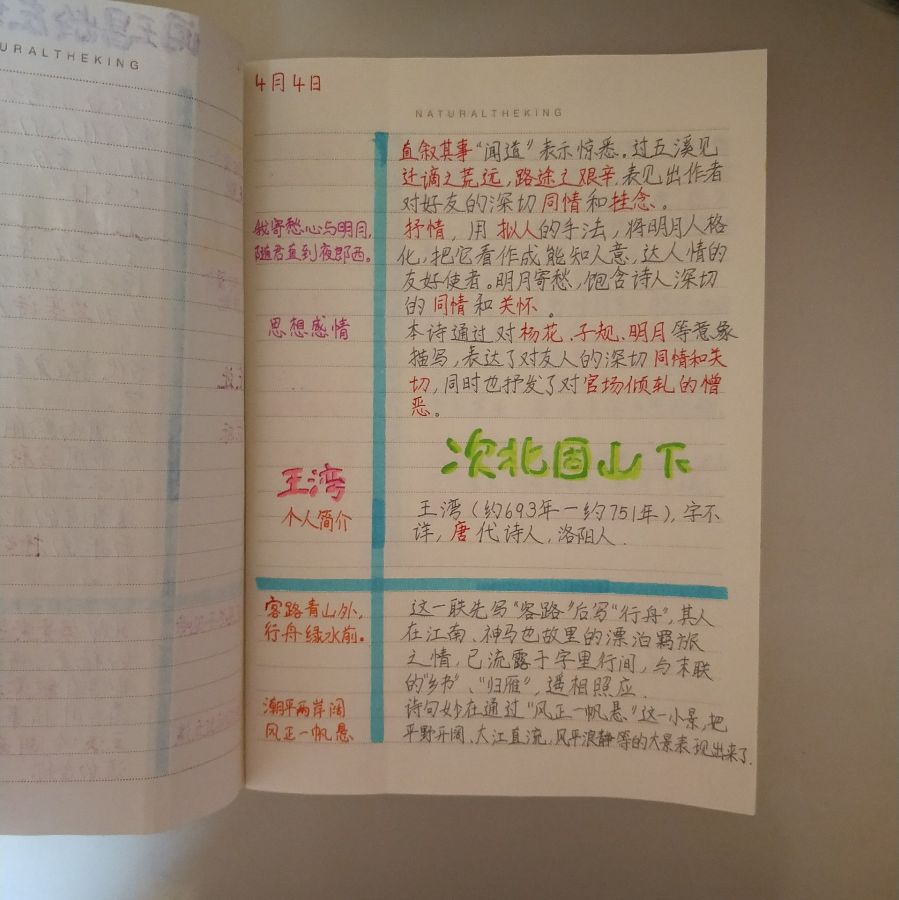 URALTHEKING
4月4日
NATURALTHEKING
直叙其事“闻道”表示惊悉。过五溪见
迁谪之荒远,路途之艰辛,表见出作者
对好友的深切同情和挂念。
我寄愁心与明月,
随君直到夜郎西。
抒情,用拟人的手法,将明月人格
化,把它看作成能知人意,达人情的
友好使者。明月寄愁,饱含诗人深切
的同情和关怀。
思想感情
本诗通过对杨花、子规、明月等意象
描写,表达了对友人的深切同情和关
切,同时也抒发了对官场倾轧的憎
恶。
次北固山下
王湾
个人简介
王湾(约693年—约751年),字不
详,唐代诗人,洛阳人.
客路青山外,
行舟绿水前。
这一联先写“客路”后写“行舟”,其人
在江南、神马也故里的漂泊羁旅
之情,已流露于字里行间,与末联
的“乡书”、“归雁”,遥相照应.
潮平两岸阔
风正一帆悬
诗句妙在通过“风正一帆悬”这一小景,把
平野开阔、大江直流、风平浪静等的大景表现出来了.